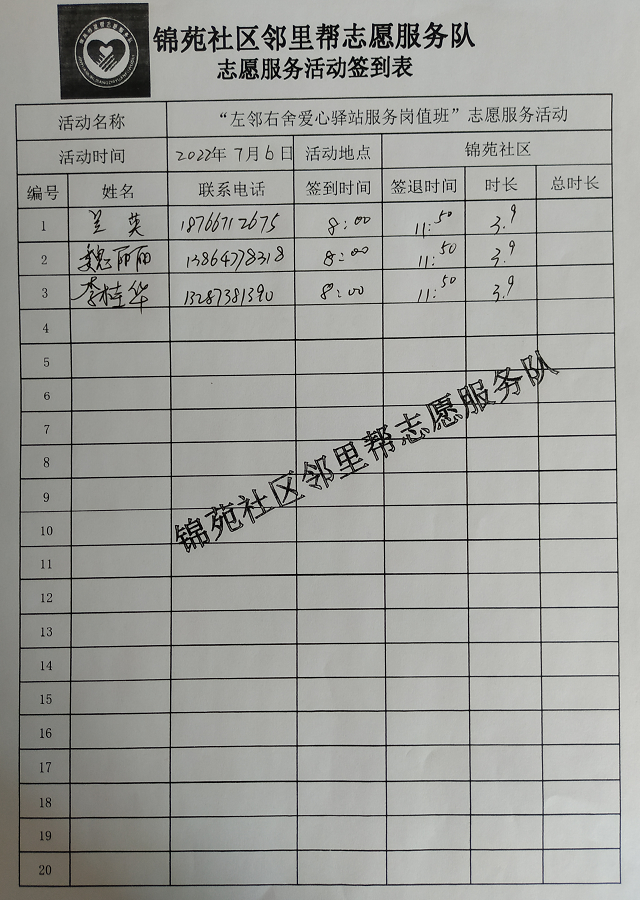 锦苑社区邻里帮志愿服务队
志愿服务活动签到表
活动名称 “左邻右舍爱心驿站服务岗值班”志愿服务活动
活动时间 2022年7月6日 活动地点 锦苑社区
编号 姓名 联系电话 签到时间 签退时间 时长 总时长
1 兰英 18766712675 8:00 11:50 3.9
2 魏丽丽 13864778318 8:00 11:50 3.9
3 李桂华 13287381390 8:00 11:50 3.9
4
5
6
7
8
9
10
11
12
13
14
15
16
17
18
19
20
锦苑社区邻里帮志愿服务队